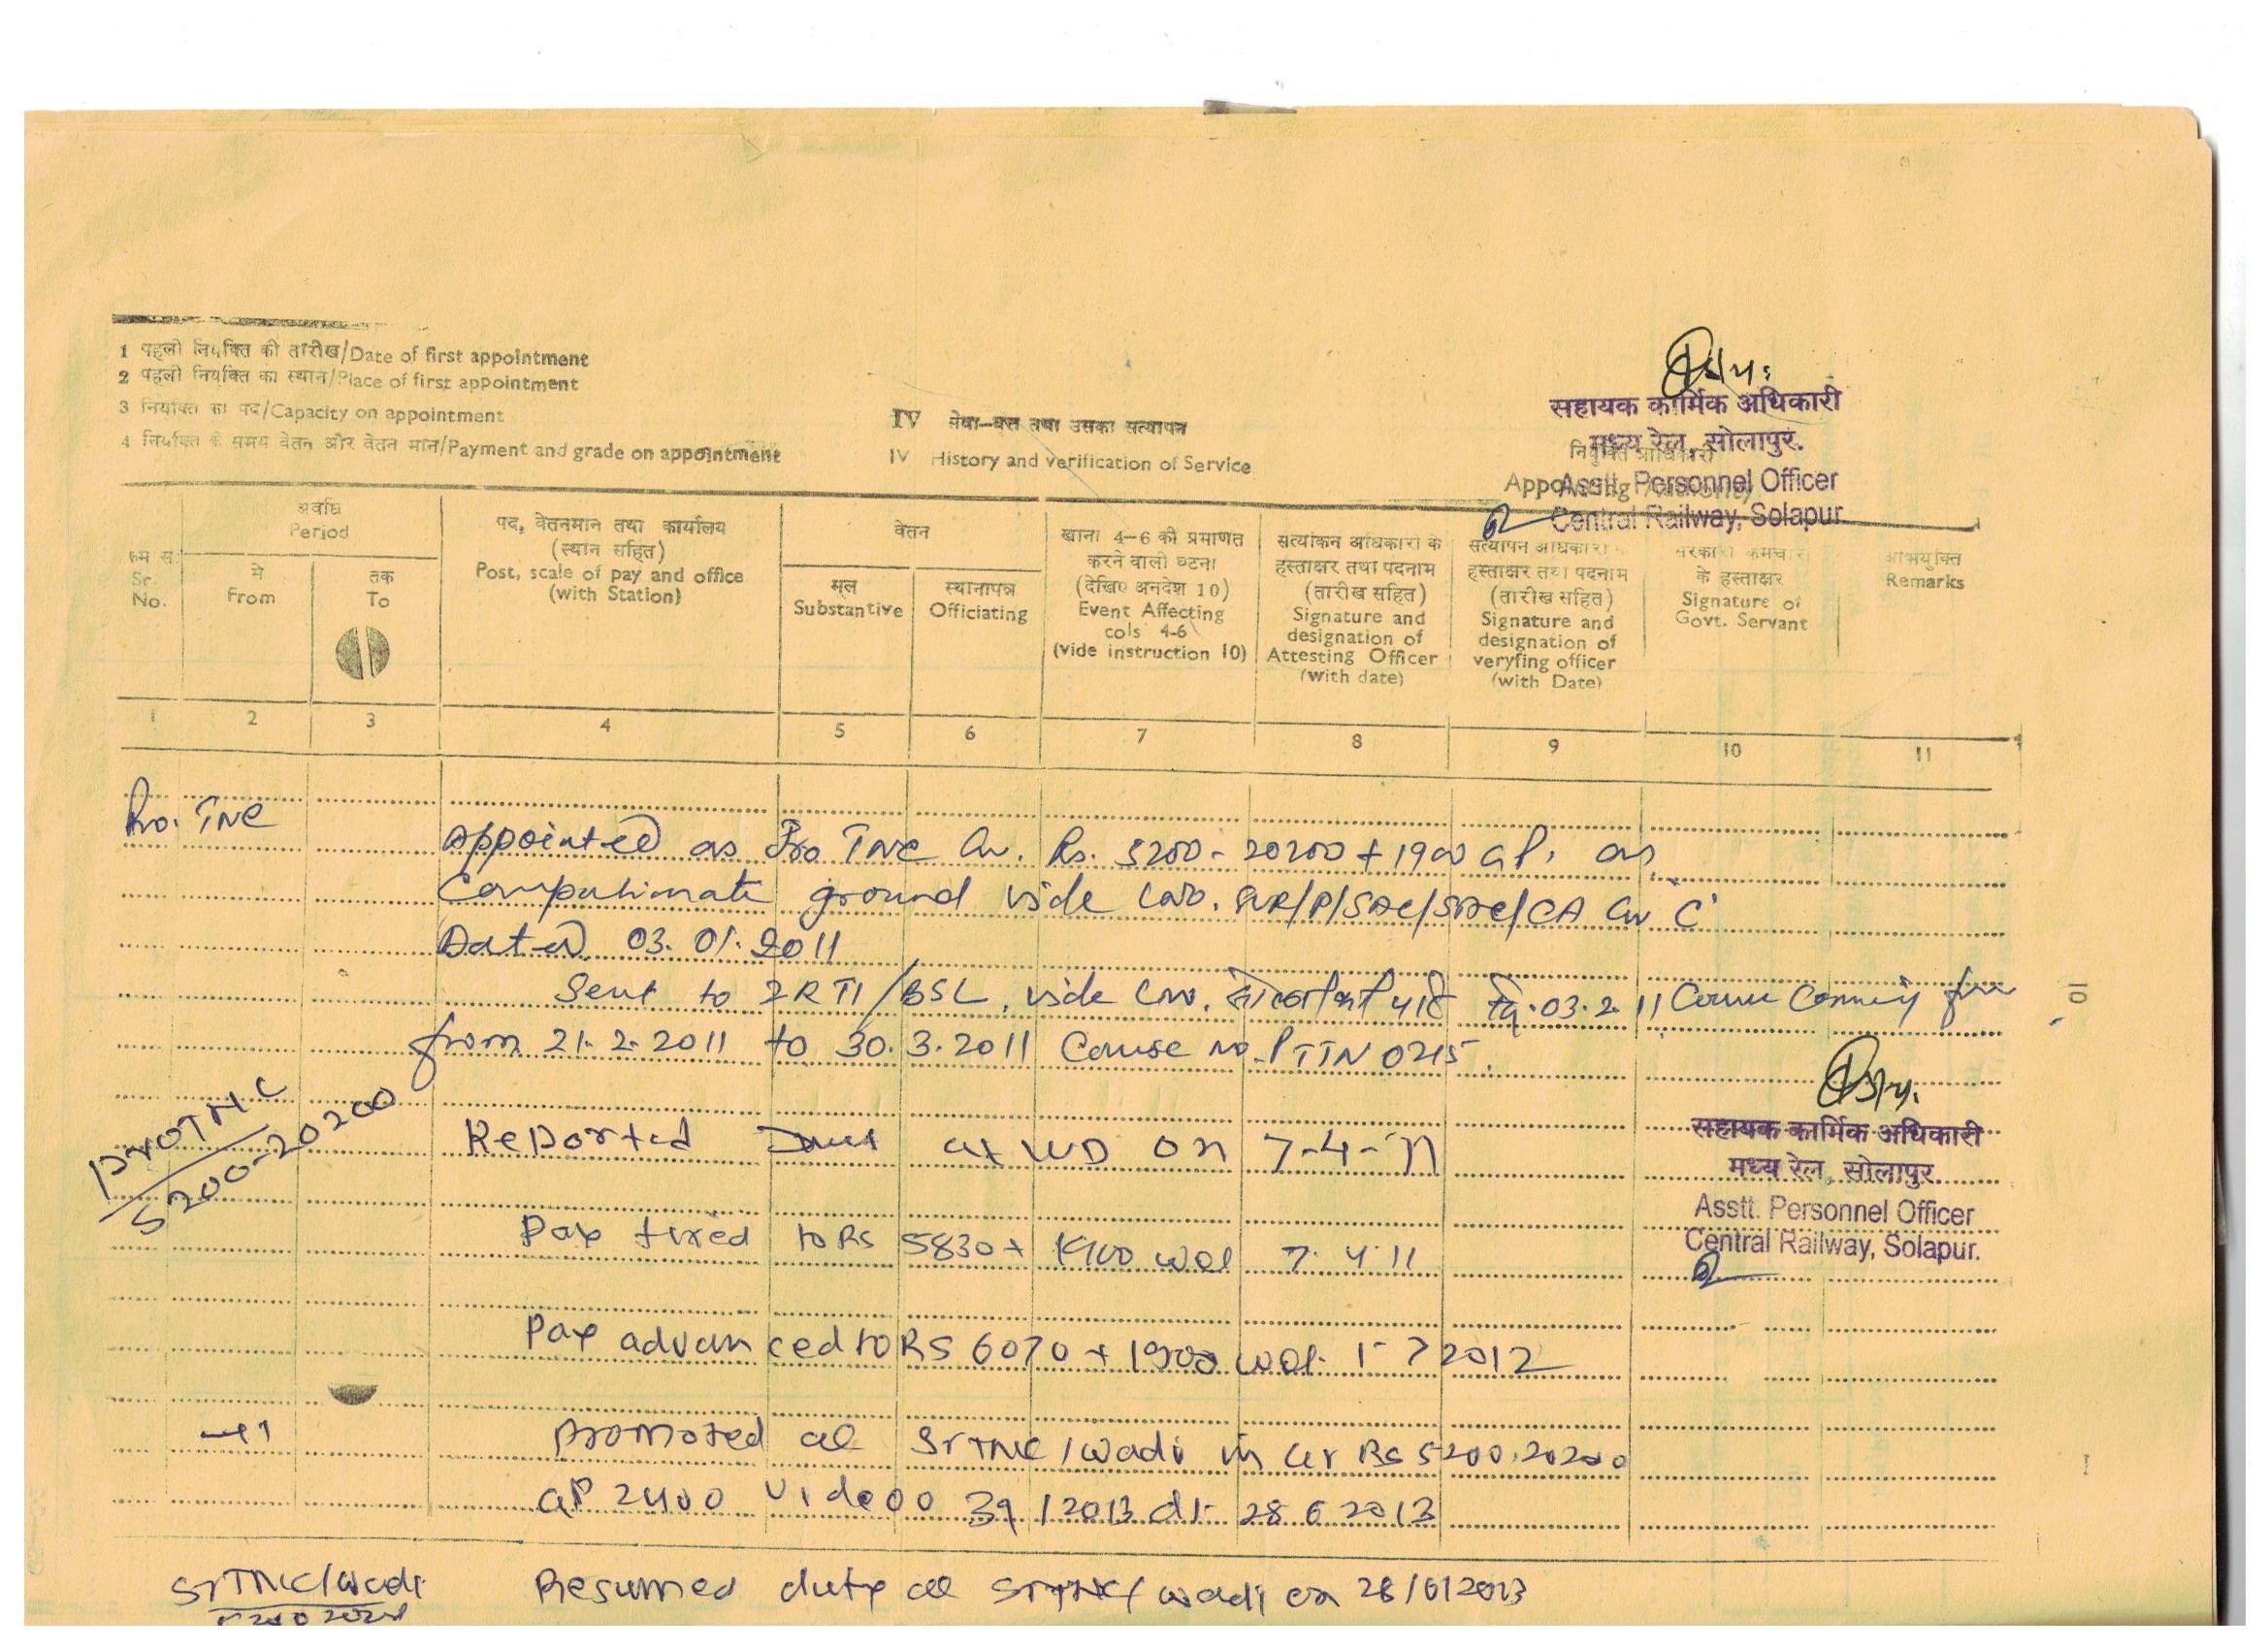 1 पहली नियुक्ति की तारीख/Date of first appointment
2 पहली नियुक्ति का स्थान/Place of first appointment
3 नियुक्ति का पद/Capacity on appointment
4 नियुक्ति के समय वेतन और वेतन मान/Payment and grade on appointment
IV सेवा-वृत्त तथा उसका सत्यापन
IV History and verification of Service
सहायक कार्मिक अधिकारी
मध्य रेल, सोलापुर.
नियुक्ति प्राधिकारी
Asstt. Personnel Officer
Central Railway, Solapur
क्रम सं.
Sr.
No.
अवधि
Period
से
From
तक
To
पद, वेतनमान तथा कार्यालय
(स्थान सहित)
Post, scale of pay and office
(with Station)
वेतन
मूल
Substantive
स्थानापन्न
Officiating
खाना 4-6 की प्रमाणत
करने वाली घटना
(देखिए अनदेश 10)
Event Affecting
cols 4-6
(vide instruction 10)
सत्यांकन अधिकारी के
हस्ताक्षर तथा पदनाम
(तारीख सहित)
Signature and
designation of
Attesting Officer
(with date)
सत्यापन अधिकारी
हस्ताक्षर तथा पदनाम
(तारीख सहित)
Signature and
designation of
veryfing officer
(with Date)
सरकारी कर्मचारी
के हस्ताक्षर
Signature of
Govt. Servant
अभियुक्ति
Remarks
1 2 3 4 5 6 7 8 9 10 11
Pro. TNC
Appointed as Pro TNC Gr. Rs. 5200-20200+1900 GP. on
ground vide
Dated 03.01.2011
Sent to ZRTI/BSL, vide 03.2.11
from 21.2.2011 to 30.3.2011 Course no. PTTN 0215.
ProTNC
5200-20200
Reported at WD on 7-4-11
सहायक कार्मिक अधिकारी
मध्य रेल, सोलापुर.
Asstt. Personnel Officer
Central Railway, Solapur.
Pay fixed to Rs 5830+1900 wef 7.4.11
Pay advanced to RS 6070+1900 wef. 1-7 2012
Promoted as SrTNC/Wadi in Gr Rs 5200.20200
GP 2400 vide OO 39/2013 dt- 28.6 2013
SrTNC/Wadi
Resumed duty as SrTNC/Wadi on 28/6/2013
10